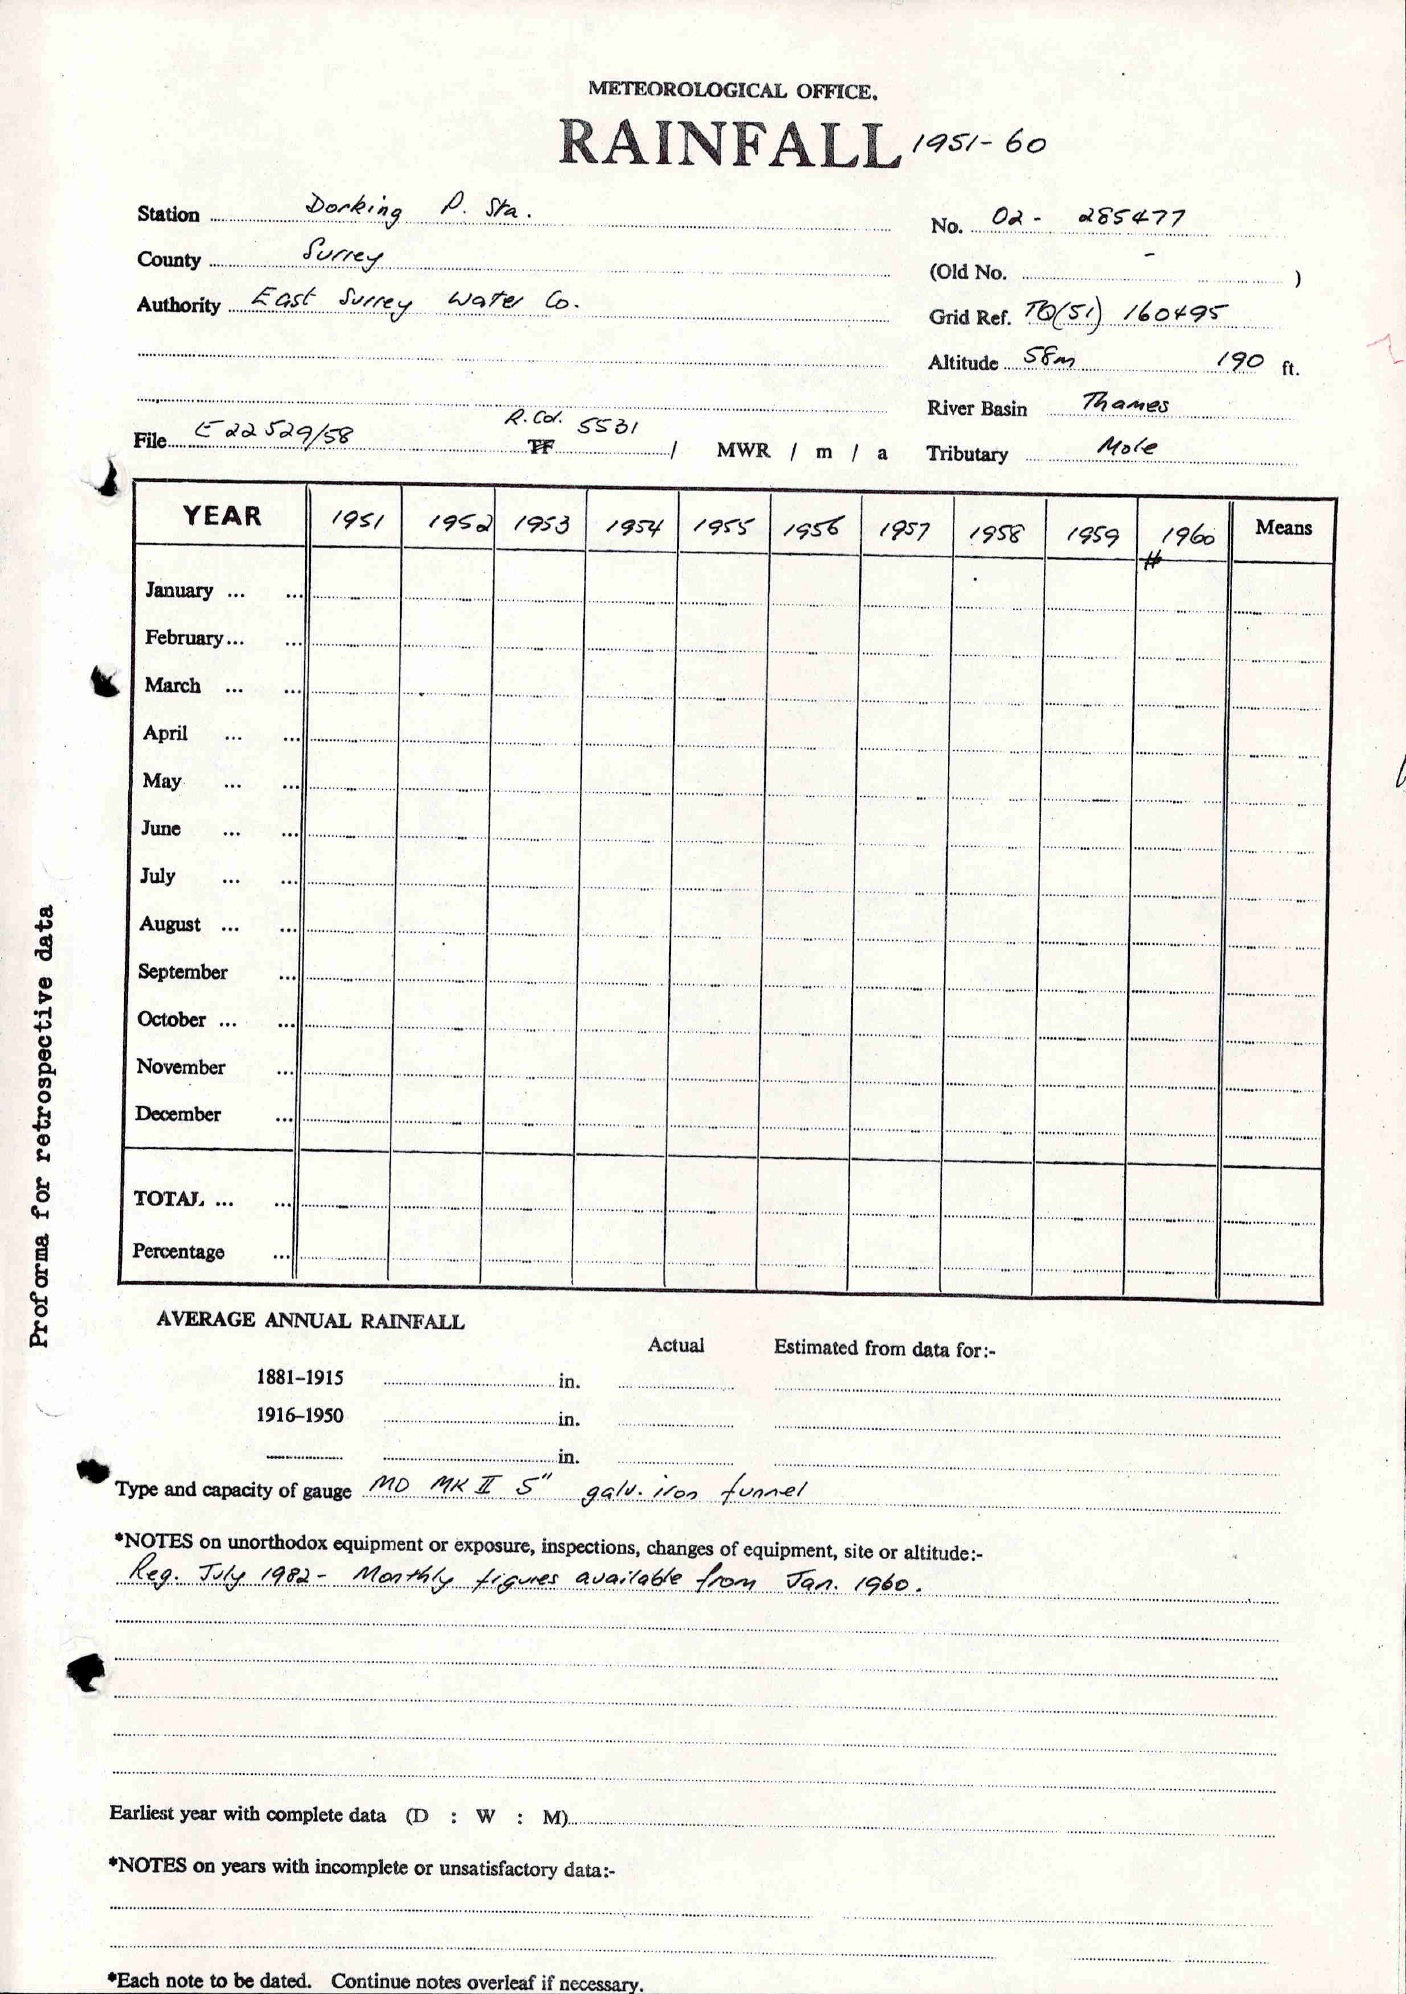 METEOROLOGICAL OFFICE.
RAINFALL 1951-60
Station Dorking P. Sta.
No. 02- 285477
County Surrey
(Old No. - )
Authority East Surrey Water Co.
Grid Ref. TQ(51) 160495
Altitude 58m 190 ft.
River Basin Thames
File E22529/58 R.Col. 5531 TF / MWR / m / a
Tributary Mole
YEAR 1951 1952 1953 1954 1955 1956 1957 1958 1959 1960 Means
#
January ... ...
February... ...
March ... ...
April ... ...
May ... ...
June ... ...
July ... ...
August ... ...
September ...
October ... ...
November ...
December ...
TOTAL ... ...
Percentage ...
Proforma for retrospective data
AVERAGE ANNUAL RAINFALL
Actual Estimated from data for:-
1881–1915 in.
1916–1950 in.
in.
Type and capacity of gauge MO MK II 5" galv. iron funnel
*NOTES on unorthodox equipment or exposure, inspections, changes of equipment, site or altitude:-
Reg. July 1982 - Monthly figures available from Jan. 1960.
Earliest year with complete data (D : W : M)
*NOTES on years with incomplete or unsatisfactory data:-
*Each note to be dated. Continue notes overleaf if necessary.